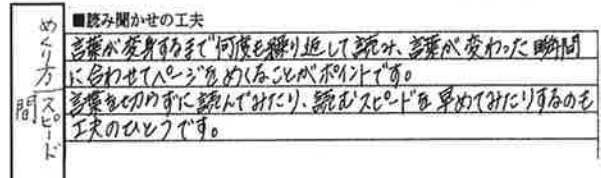 めくり方
スピード
間
■読み聞かせの工夫
言葉が変身するまで何度も繰り返して読み、言葉が変わった瞬間
に合わせてページをめくることがポイントです。
言葉を切らずに読んでみたり、読むスピードを早めてみたりするのも
工夫のひとつです。